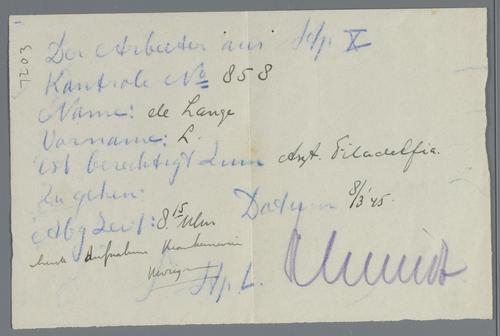 7203
Der Arbeiter aus Stp. X
Kontrole No 858
Name: de Lange
Vorname: L.
ist berechtigt zum Arzt. Filadelfia.
zu gehen.
Abg Zeit: 8 15 Uhr Datum 8/3 '45.
Aufnahme
Stp. L.